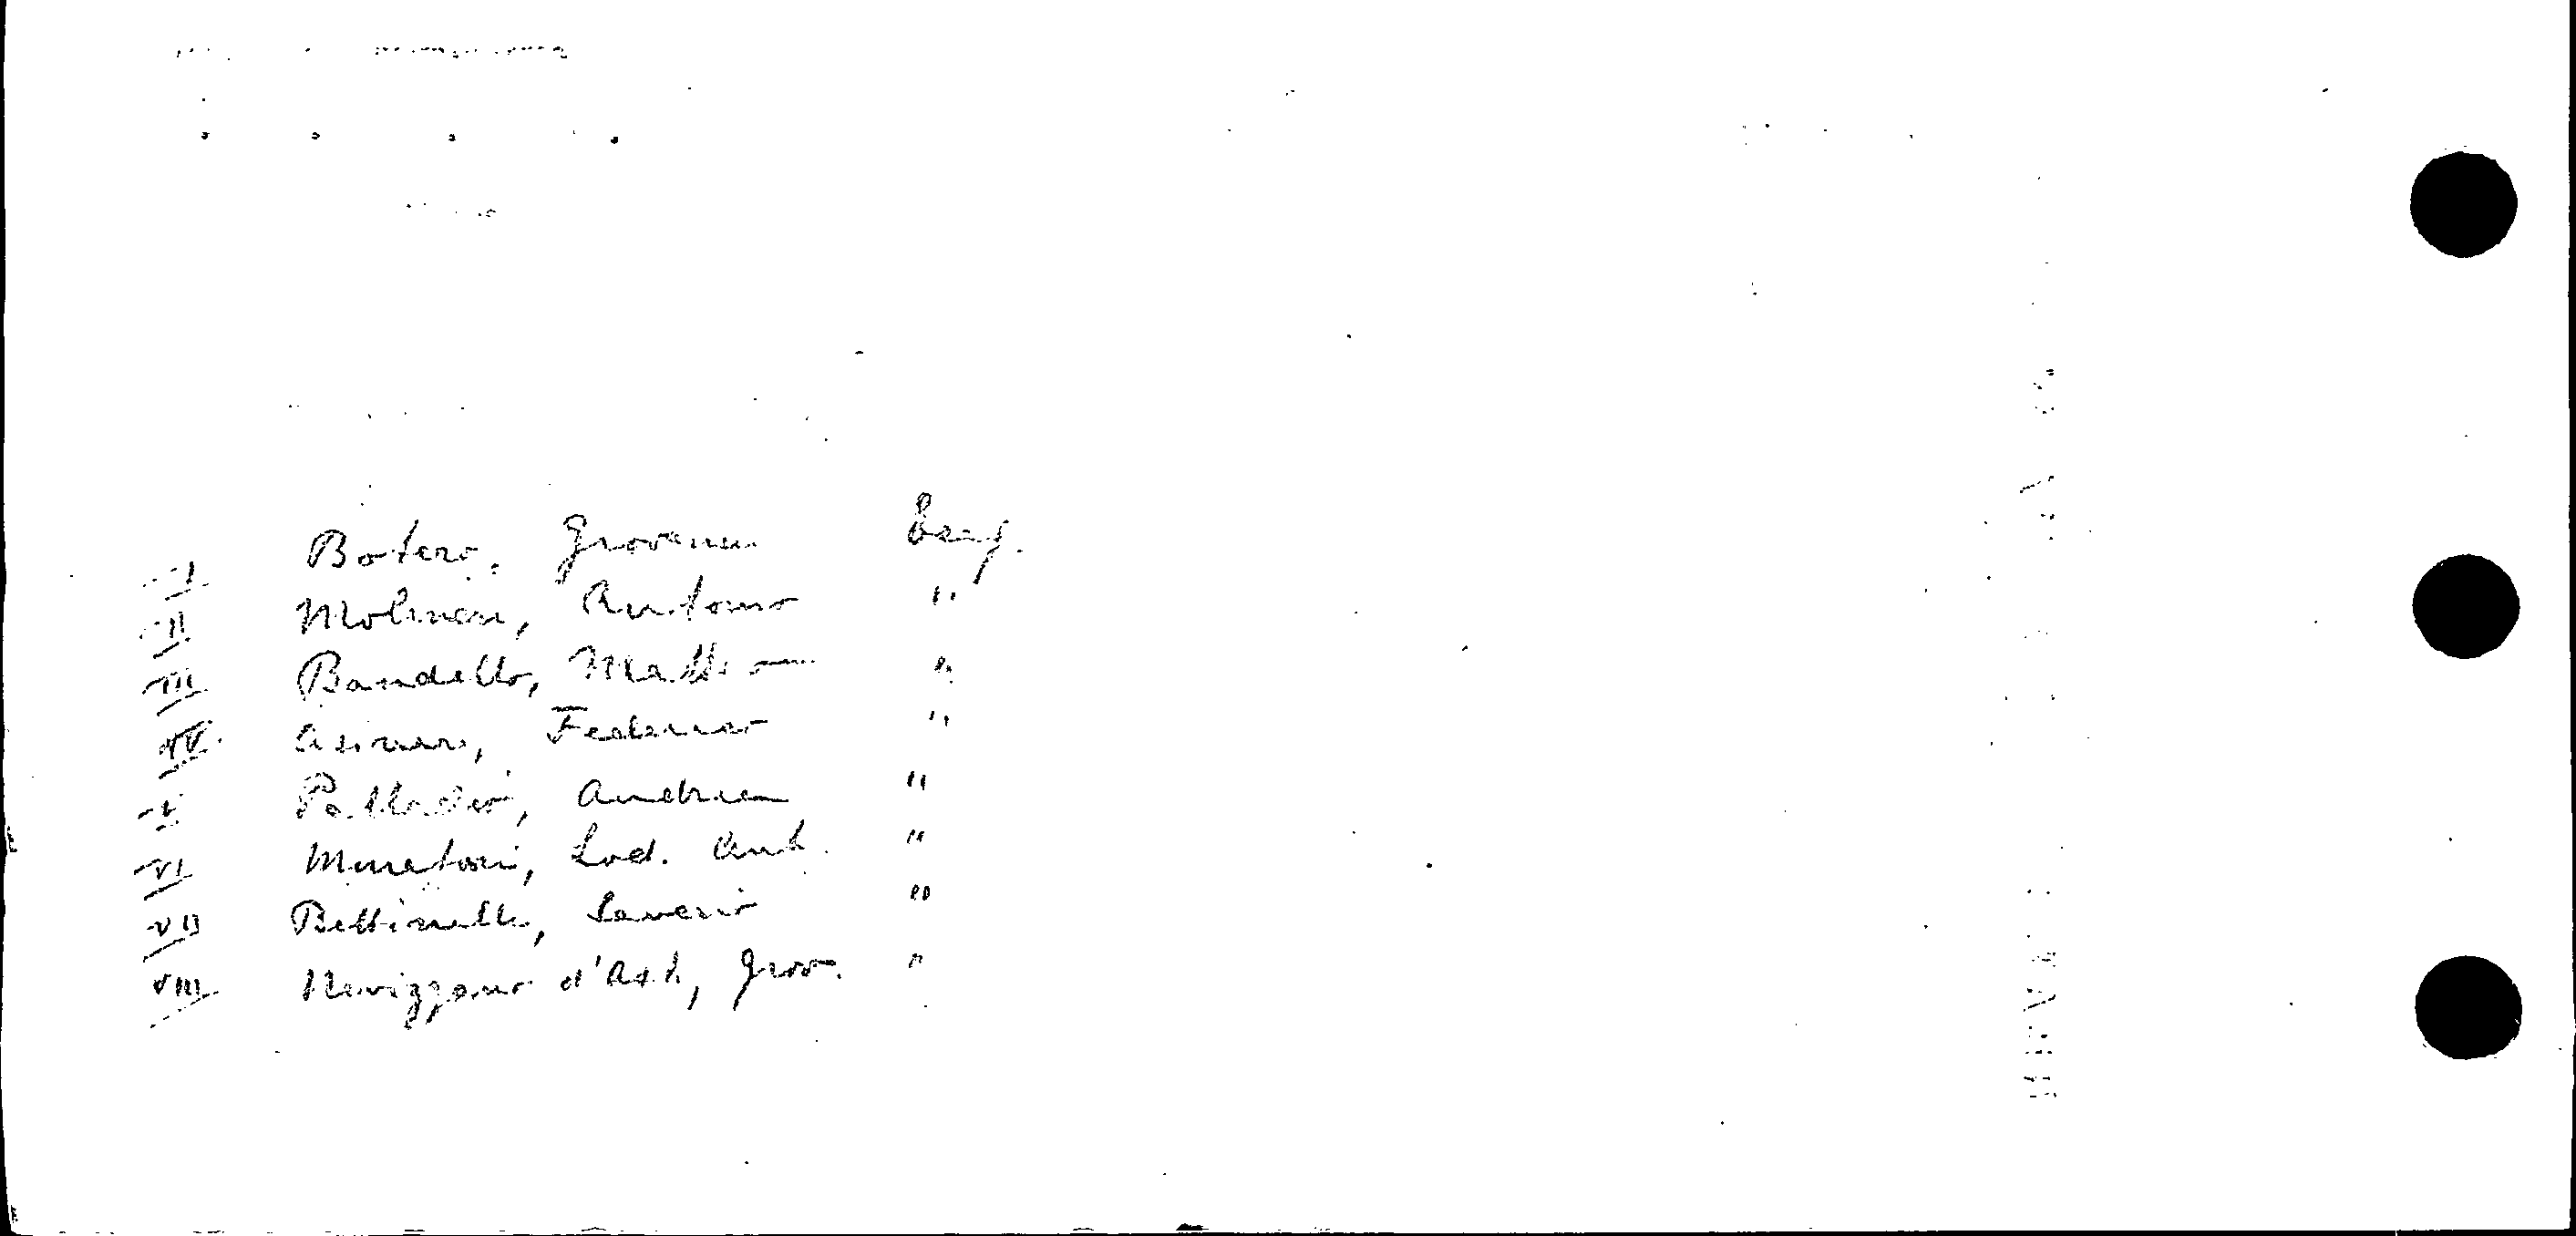 I Botero, Giovanni beig.
II Molineri, Antonio "
III Bandello, Matteo "
IV Asinari, Federico "
V Palladio, Andrea "
VI Muratori, Lod. Ant. "
VII Bettinelli, Saverio "
VIII Nevizzano d'Asti, Giov. "